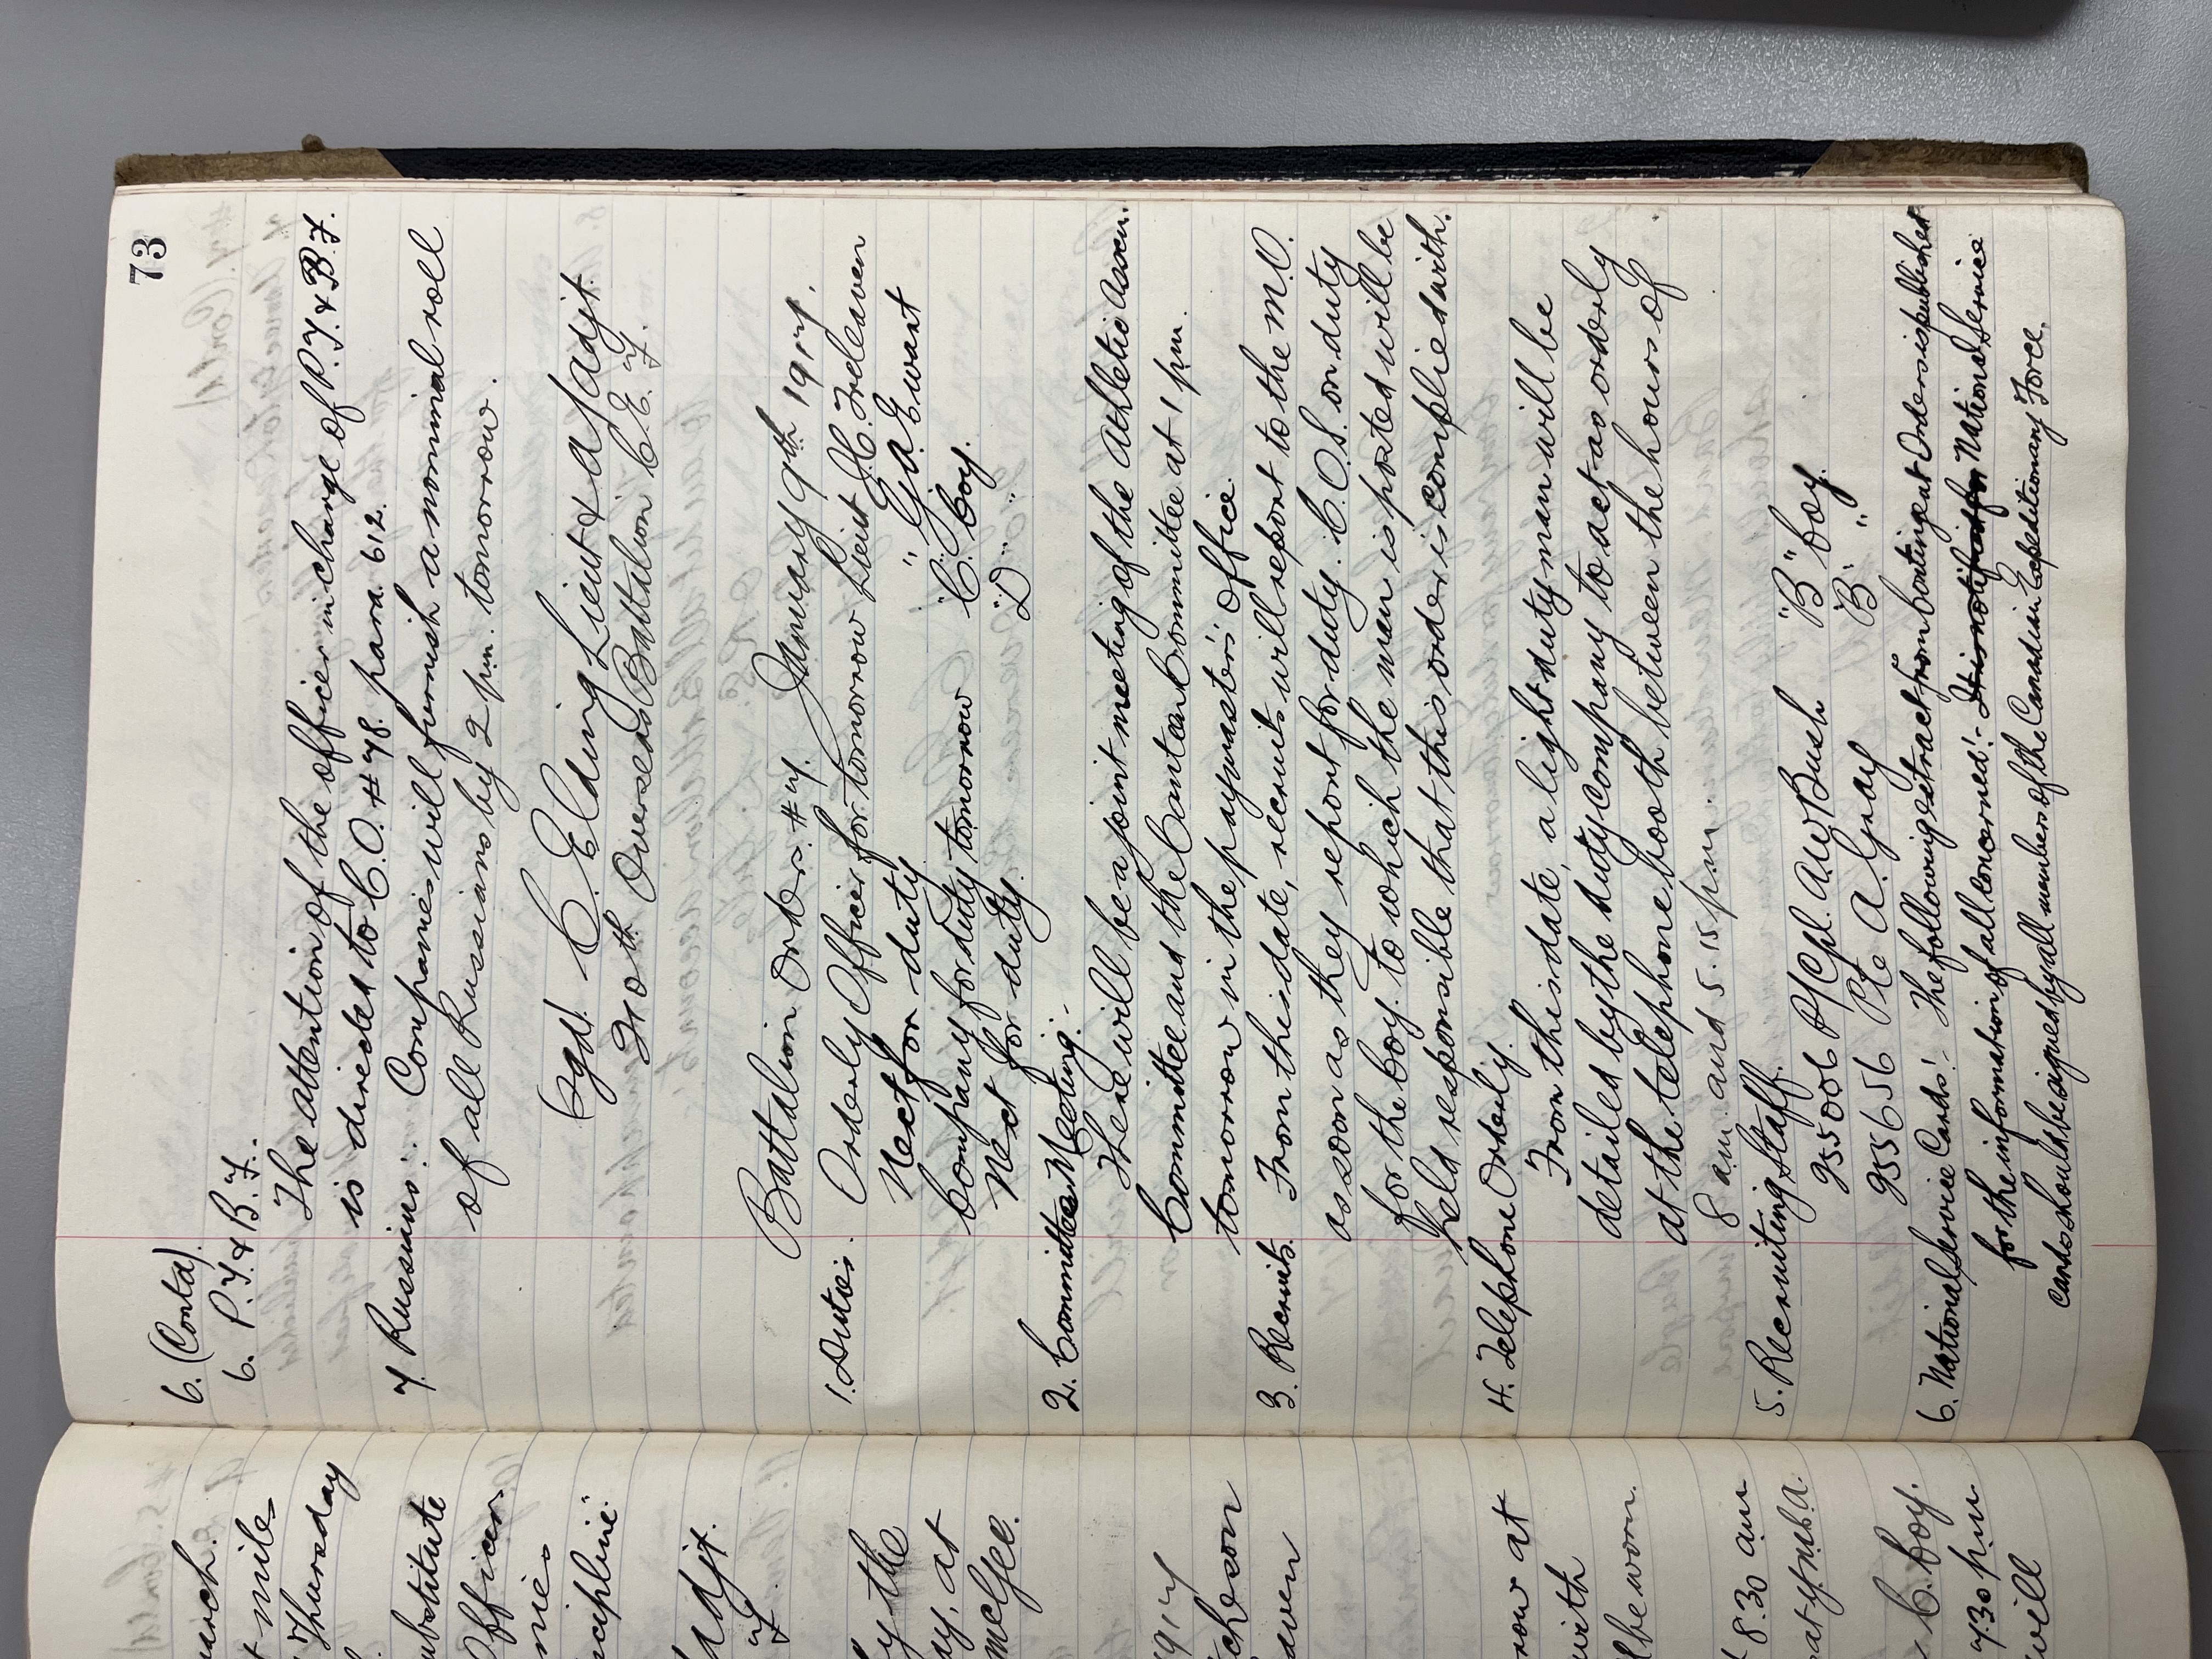 73
6. (Contd)
6. P.T. & B.F.
The attention of the officer in charge of P.T. & B.F.
is directed to C.O. # 78. para. 612.
7. Russians: Companies will furnish a nominal roll
of all Russians by 2 pm. tomorrow.
(Sgd. C. Elding Lieut & a/adjt.
240th Overseas Battalion C.E.F.
Battalion Orders # 7. January 9th 1917.
1. Duties. Orderly Officer for tomorrow Lieut J.C. Treleaven
Next for duty " G.A. Ewart
Company for duty tomorrow "C" Coy.
Next for duty. "D" "
2. Committee Meeting:-
There will be a joint meeting of the Athletic Asscn.
Committee and the Canteen Committee at 1 pm.
tomorrow in the paymaster's Office.
3. Recruits. From this date, recruits will report to the M.O.
as soon as they report for duty. C.O.S. on duty
for the Coy. to which the man is posted will be
held responsible that this order is complied with.
4. Telephone Orderly.
From this date, a light duty man will be
detailed by the duty company to act as orderly
at the telephone booth between the hours of
8 am. and 5.15 pm.
5. Recruiting Staff.
955006 P/Cpl. A.W. Bush "B" Coy.
955656 Pte A. Gray "B" "
6. National Service Cards:- The following extract from Contingent Orders is published
for the information of all concerned:- It is notified for National Service
cards should be signed by all members of the Canadian Expeditionary Force.
march.
mile
Thursday
substitute
Officers
discipline
adjt.
by the
at
McGee.
1917
row at
with
ll be worn.
8.30 am
C. Coy.
7.30 p.m.
will